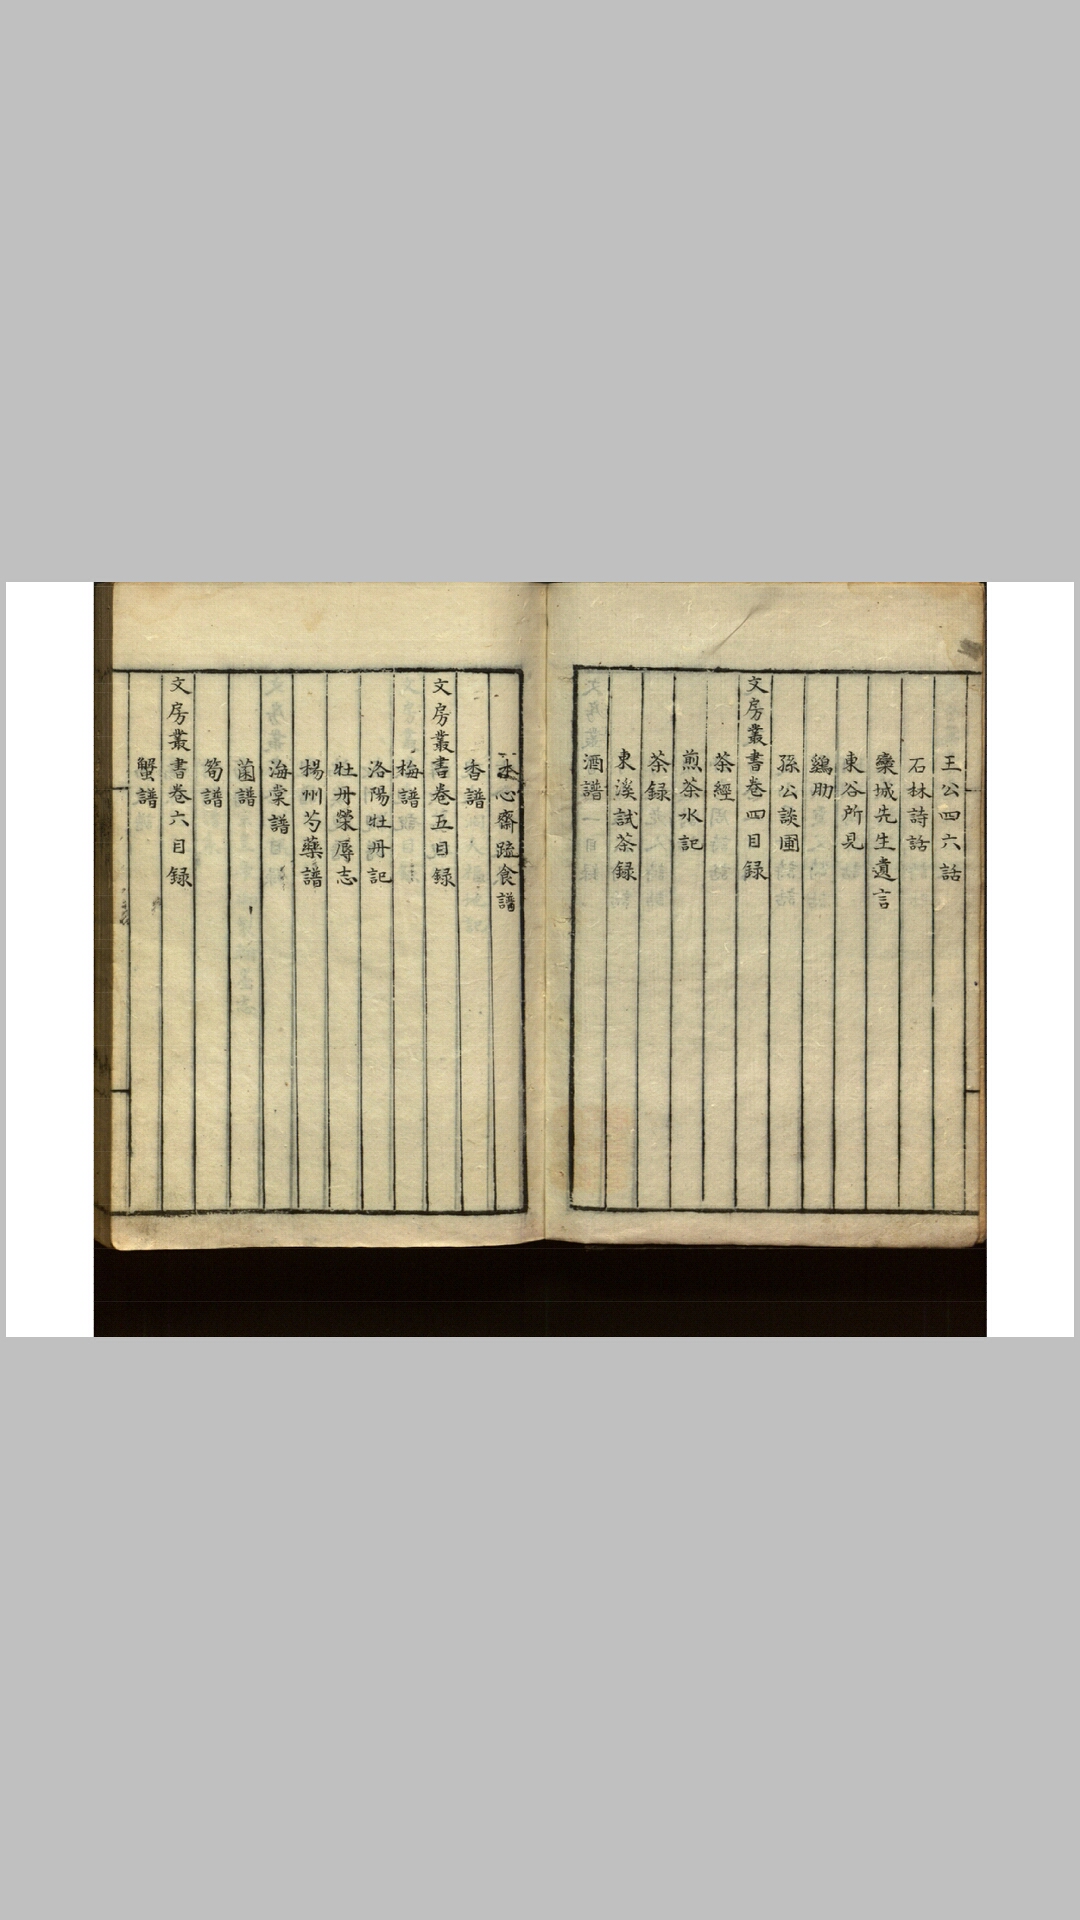 王公四六話
石林詩話
欒城先生遺言
東谷所見
鷄肋
孫公談圃
文房叢書卷四目録
茶經
煎茶水記
茶録
東溪試茶録
酒譜
本心齋蔬食譜
香譜
文房叢書卷五目録
梅譜
洛陽牡丹記
牡丹榮辱志
揚州芍藥譜
海棠譜
菌譜
筍譜
文房叢書卷六目録
蟹譜